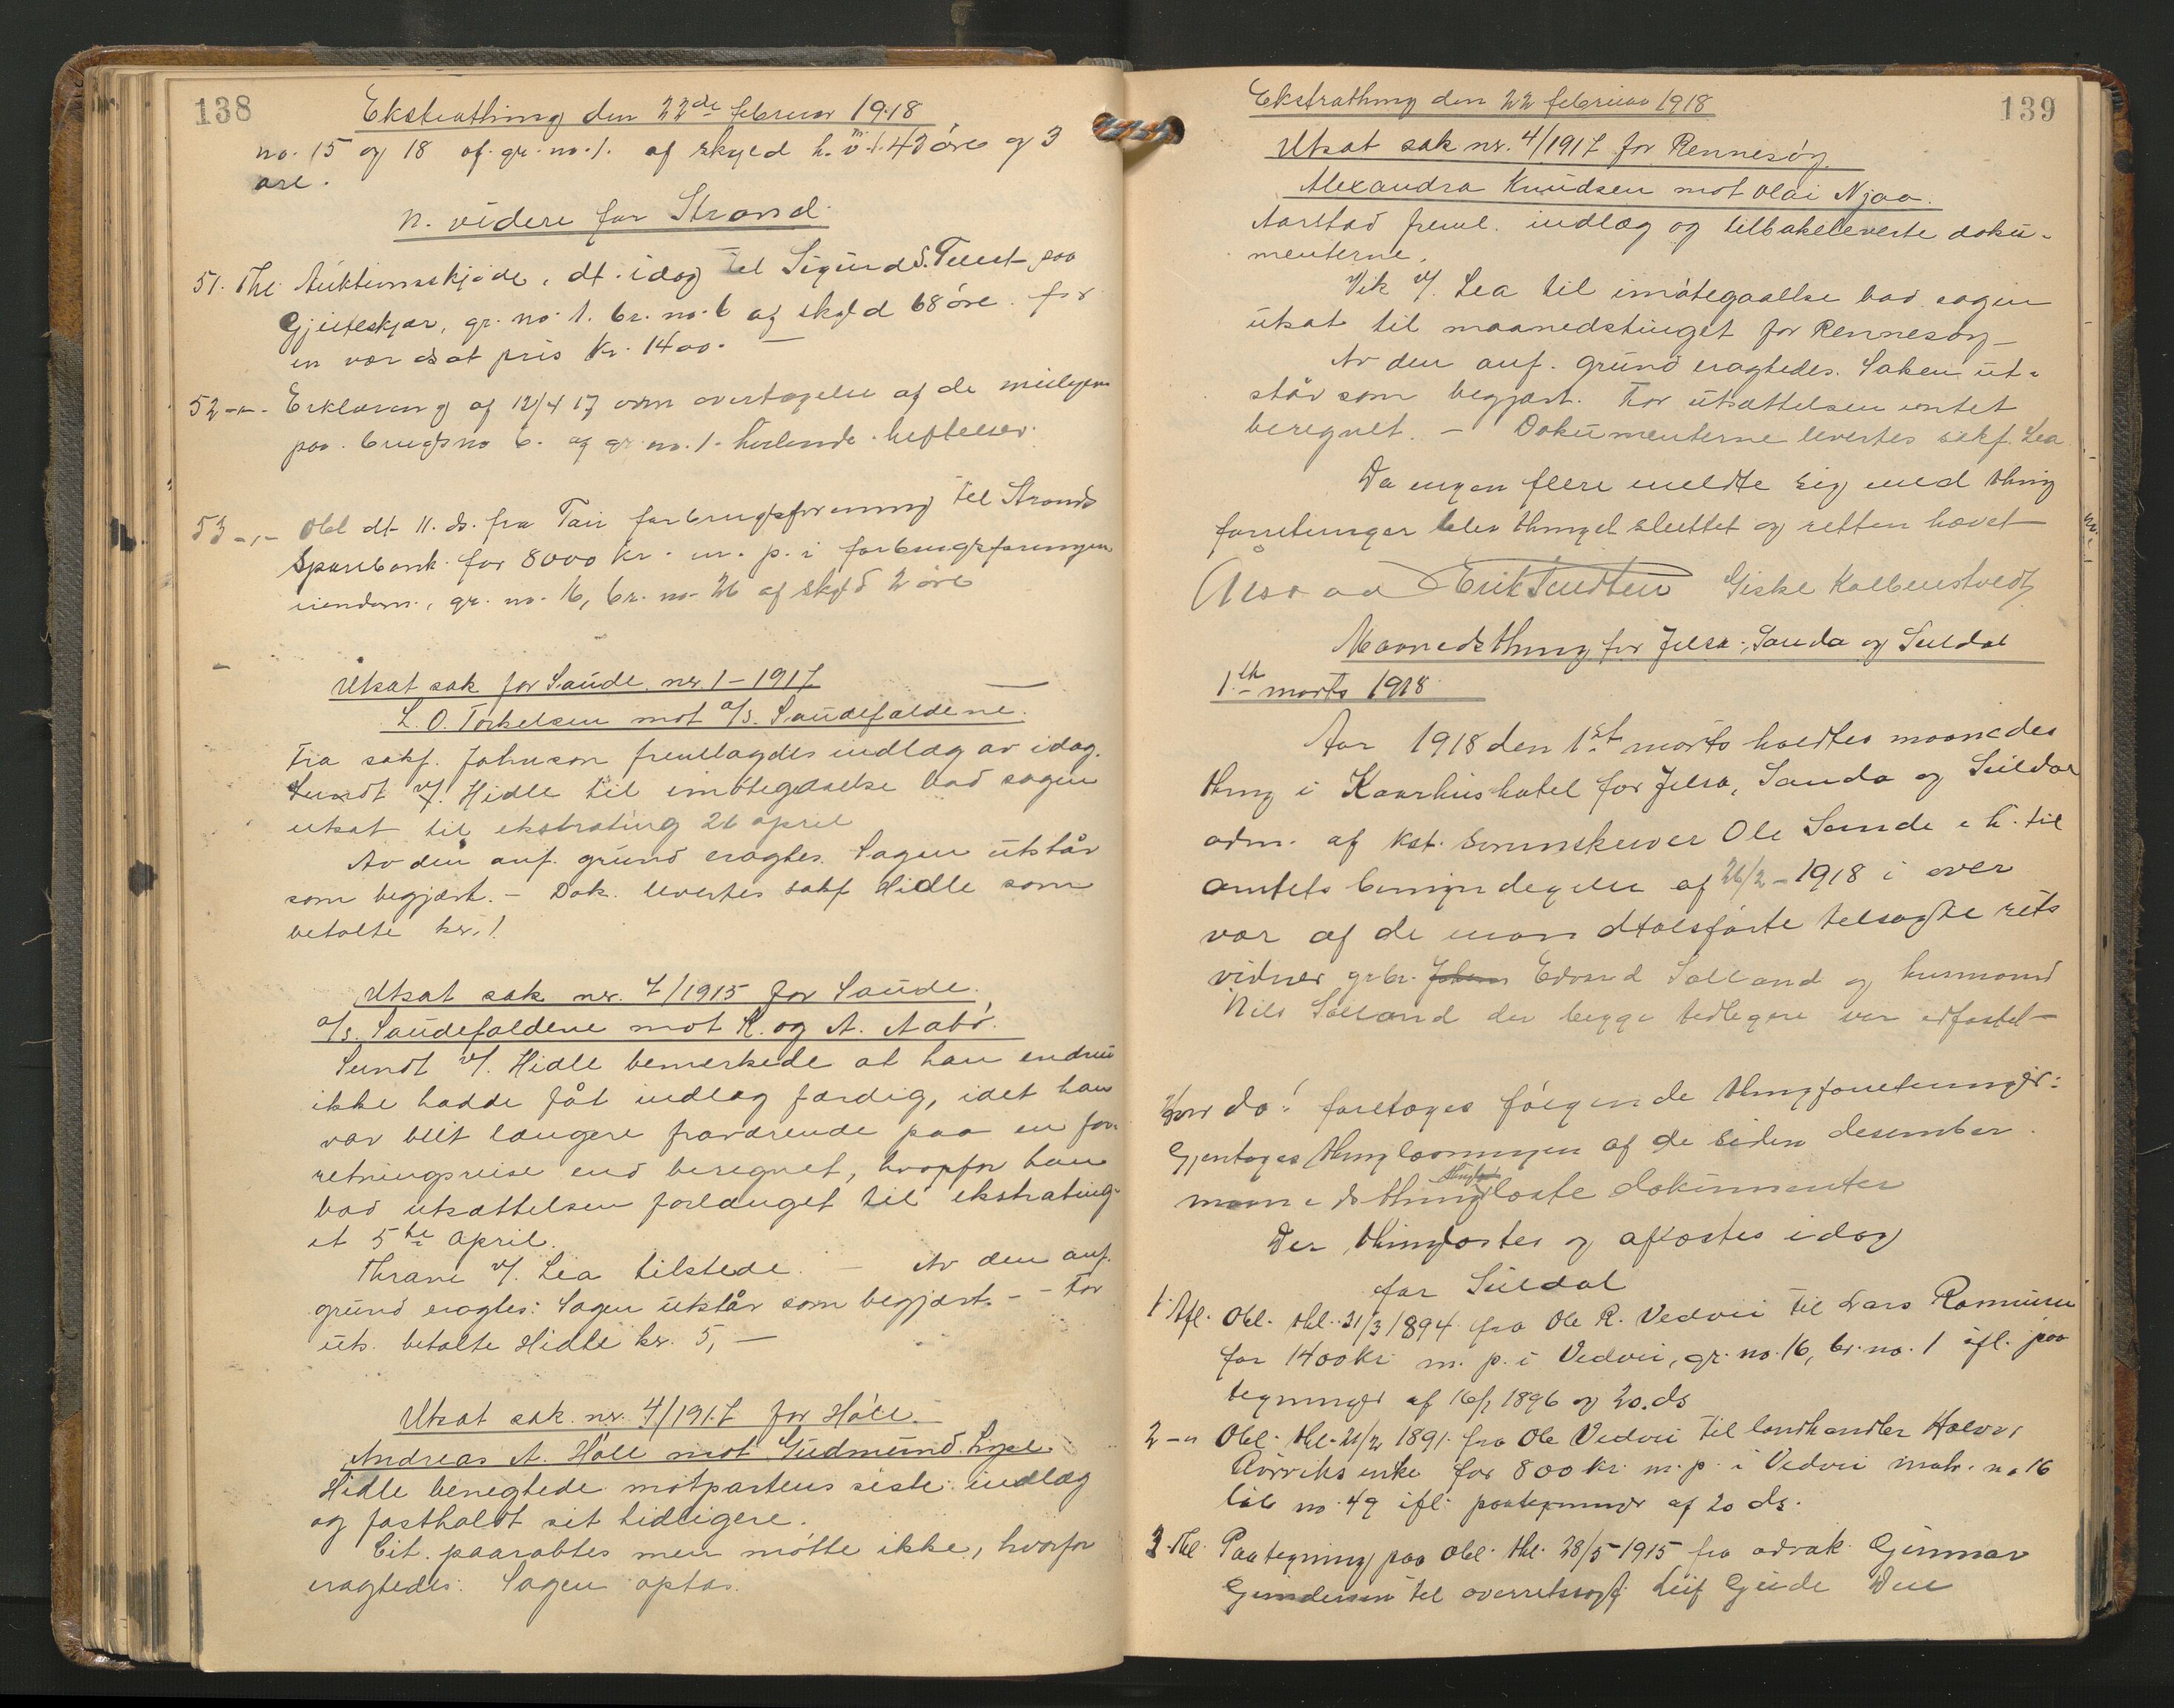 138
Ekstrathing den 22de februar 1918
no. 15 og 18 af gr. no. 1. af skyld h. v. 1.43 öre og 3
öre.
n. videre for Strand
51. Thl. Auktionsskjöde, dt. idag til Sigurd S. paa
gr. no. 1. br. no. 6 af skyld 68 öre for
en pris Kr. 1400. —
52 -"- Erklæring af 12/4 17 om overtagelse af de
paa brugsno 6. af gr. no. 1. heftelser.
53 -"- Obl dt 11. ds. fra Tau forbrugsforening til Strands
Sparebank for 8000 kr. m. p. i forbrugsforeningens
eiendom, gr. no. 16, br. no. 26 af skyld 2 öre
Utsat sak for Saude nr. 1 - 1917
L. O. Torkelsen mot a/s. Saudefaldene.
Fra sakf. Johnson fremlagdes indlæg av idag.
Sundt v/. Hidle til imötegaaelse bad sagen
utsat til ekstrating 26 april
Av den anf. grund eragtes. Sagen utstår
som begjært. - Dok. levertes sakf Hidle som
betalte kr. 1
Utsat sak nr. 7/1915 for Saude.
a/s. Saudefaldene mot R. og A. Aabö.
Sundt v/. Hidle bemerkede at han endnu
ikke hadde fåt indlæg færdig, idet han
var blit længere fraværende paa en for-
retningsreise end beregnet, hvorfor han
bad utsættelsen forlænget til ekstrating-
et 5te april.
Thrane v/. Lea tilstede. - Av den anf.
grund eragtes: Sagen utstår som begjært. - - For
uts. betalte Hidle kr. 5, —
Utsat sak nr. 4/1917 for Höle.
Andreas A. Höle mot Gudmund
Hidle benegtede motpartens siste indlæg
og fastholdt sit tidligere.
Cit. paaraabtes men mötte ikke, hvorfor
eragtedes: Sagen optas.
139
Ekstrathing den 22 februar 1918
Utsat sak nr. 4/1917 for Rennesöy
Alexandra Knudsen mot Olai Njaa.
Aarstad freml. indlæg og tilbakeleverte doku-
menterne.
Vik v/. Lea til imötegaaelse bad sagen
utsat til maanedstinget for Rennesöy —
Av den anf. grund eragtedes. Saken ut-
står som begjært. For utsættelsen intet
beregnet. - Dokumenterne levertes sakf. Lea
Da ingen flere meldte sig med thing
forretninger blev thinget sluttet og retten hævet —
Giske Kolbenstvedt
Maanedsthing for Jelsa, Sauda og Suldal
1ste marts 1918
Aar 1918 den 1st marts holdtes maanedes
thing i Kaarhus hotel for Jelsa, Sauda og Suldal
adm. af kst. sorenskriver Ole Sande e. h. til
amtets bemyndigelse af 26/2 - 1918 i over
vær af de mandtalsførte tilsagte rets
vidner grbr. Edvard Sølland og husmand
Nils Sølland der begge tidligere var edfæstet —
Hvor da! foretoges fölgende thingforretninger:
Gjentoges thinglæsningen af de siden desember
maanedsthing læste dokumenter
Der thinglæstes og aflæstes idag
for Suldal
1. Afl. Obl. thl. 31/3 1894 fra Ole R. Vedvii til Lars Rasmusen
for 1400 kr. m. p. i Vedvii, gr. no. 16, br. no. 1 ifl. paa
tegninger af 16/1 1896 og 20. ds
2 -"- Obl. thl. 21/2 1891. fra Ole Vedvii til landhandler Halvor
enke for 800 kr. m. p. i Vedvii matr. no 16
löb no. 49 ifl. paategninger af 20 ds.
3. Thl. Paategning paa obl. thl. 28/5-1915 fra advok. Gunnar
Gundersen til overretssagf. Leif Gude Den